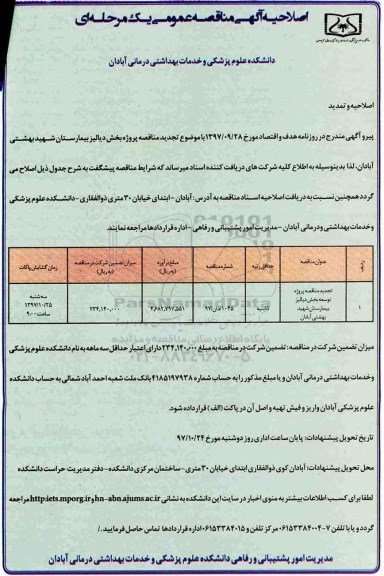 اصلاحیه آگهی مناقصه عمومی یک مرحله‌ای
دانشکده علوم پزشکی و خدمات بهداشتی درمانی آبادان
اصلاحیه و تمدید
پیرو آگهی مندرج در روزنامه هدف و اقتصاد مورخ ۱۳۹۷/۰۹/۲۸ با موضوع تجدید مناقصه پروژه بخش دیالیز بیمارستان شهید بهشتی
آبادان، لذا بدینوسیله به اطلاع کلیه شرکت های دریافت کننده اسناد میرساند که شرایط مناقصه پیشگفت به شرح جدول ذیل اصلاح می
گردد همچنین نسبت به دریافت اصلاحیه اسناد مناقصه به آدرس: آبادان - ابتدای خیابان ۳۰ متری ذوالفقاری - دانشکده علوم پزشکی
وخدمات بهداشتی ودرمانی آبادان - مدیریت امور پشتیبانی و رفاهی - اداره قراردادها مراجعه نمایند.
ردیف عنوان مناقصه حداقل رتبه شماره مناقصه مبلغ برآورد (به ریال) میزان تضمین شرکت در مناقصه (به ریال) زمان گشایش پاکات
۱ تجدید مناقصه پروژه توسعه بخش دیالیز بیمارستان شهید بهشتی آبادان ۲۳۴,۱۴۰,۰۰۰ سه شنبه ۱۳۹۷/۱۰/۲۵ ساعت ۹:۰۰
ParsNamadData
پایگاه اطلاع رسانی مناقصه و مزایده
میزان تضمین شرکت در مناقصه: تضمین شرکت در مناقصه به مبلغ ۲۳۴,۱۴۰,۰۰۰ دارای اعتبار حداقل سه ماهه به نام دانشکده علوم پزشکی
وخدمات بهداشتی درمانی آبادان و یا مبلغ مذکور را به حساب شماره ۴۱۸۵۱۹۷۹۳۸ بانک ملت شعبه احمد آباد شمالی به حساب دانشکده
علوم پزشکی آبادان واریز و فیش تهیه و اصل آن در پاکت (الف) قرار داده شود.
تاریخ تحویل پیشنهادات: پایان ساعت اداری روز دوشنبه مورخ ۹۷/۱۰/۲۴
محل تحویل پیشنهادات: آبادان کوی ذوالفقاری ابتدای خیابان ۳۰ متری - ساختمان مرکزی دانشکده - دفتر مدیریت حراست دانشکده
لطفا برای کسب اطلاعات بیشتر به منوی اخبار در سایت این دانشکده به نشانی hn-abn.ajums.ac.ir و http:iets.mporg.ir مراجعه
گردد و یا با تلفن ۷-۰۶۱۵۳۳۸۴۰۰۴ مرکز تلفن و ۰۶۱۵۳۳۸۴۰۱۵ اداره قراردادها تماس حاصل فرمایید./
مدیریت امور پشتیبانی و رفاهی دانشکده علوم پزشکی و خدمات بهداشتی درمانی آبادان